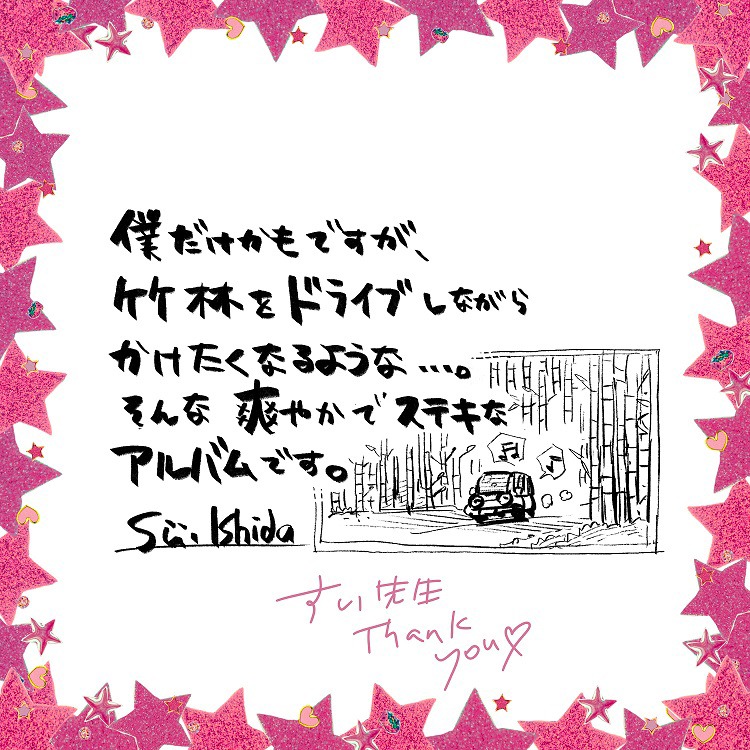 僕だけかもですが、
竹林をドライブしながら
かけたくなるような…。
そんな爽やかでステキな
アルバムです。
Sui. Ishida
すい先生
Thank
you♡